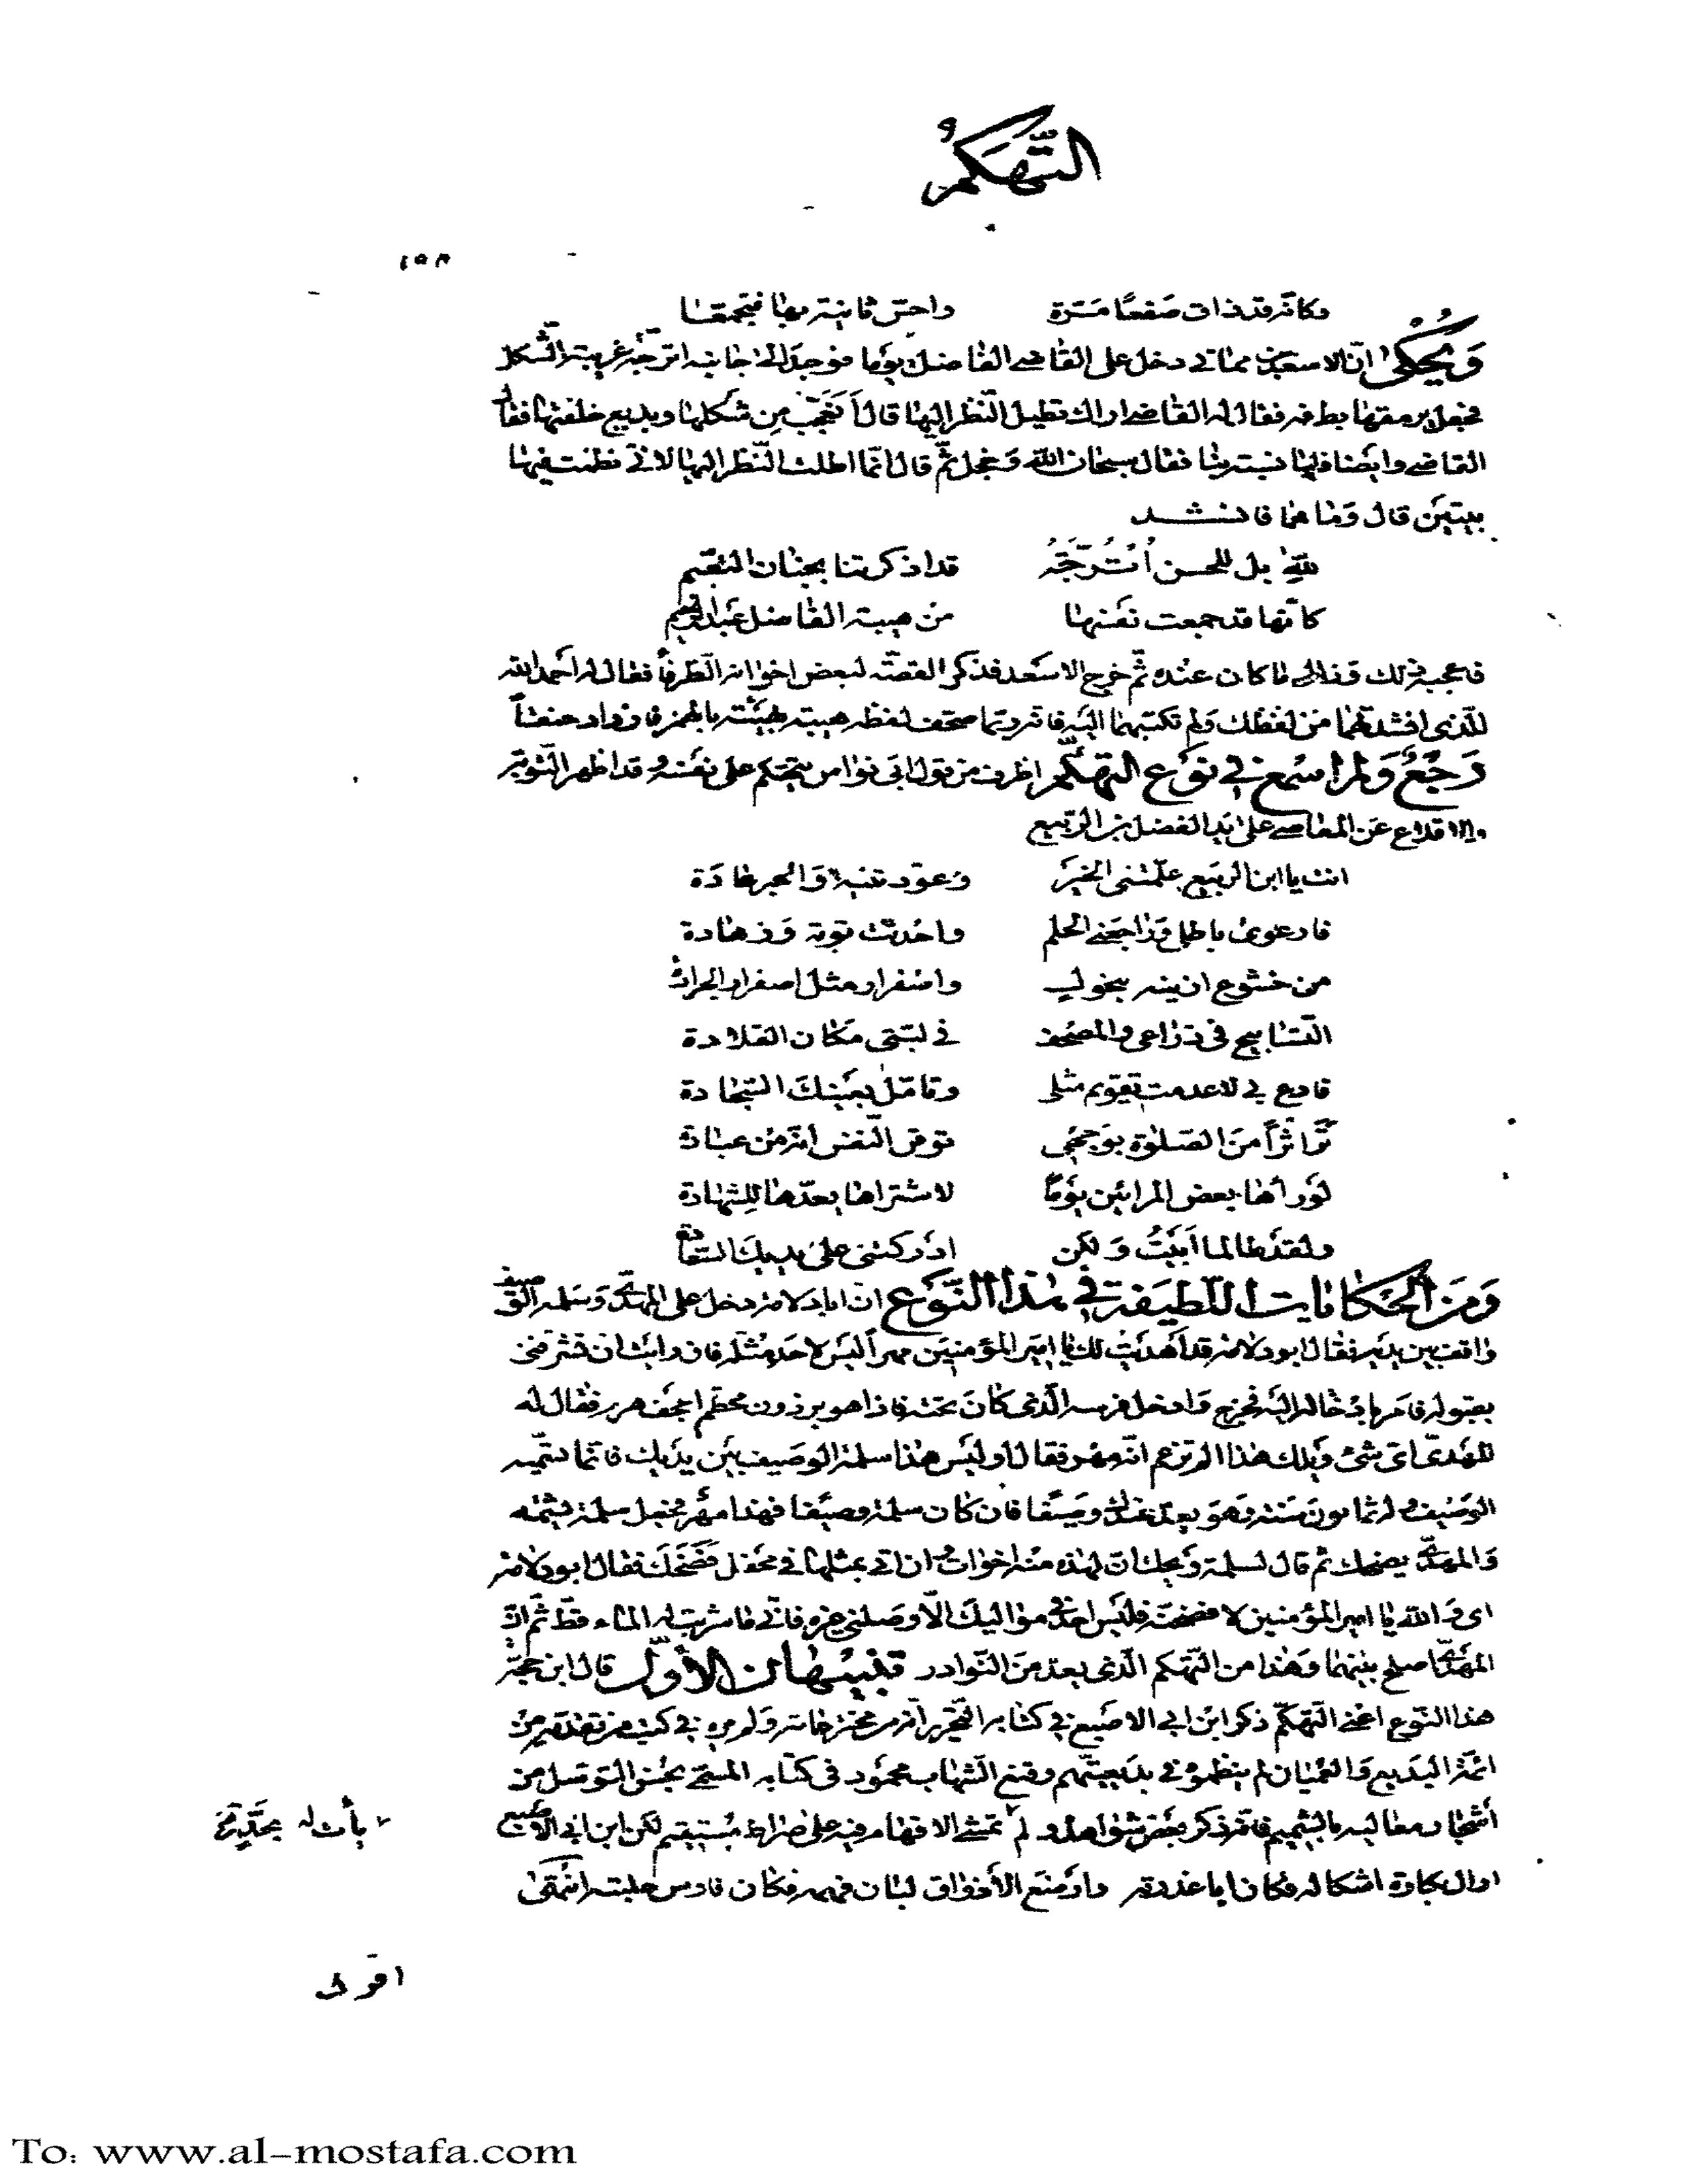 التّهكّم
١٥٨
وكانّه قد ذاق صَفعًا مَرّة واحسّ ثانية بها فتجمّعا
وَيُحكى انّ الاسعد بن مماتى دخل على القاضى الفاضل يومًا فوجد الى جانبه اترجّه غريبة الشّكل
فجعل يرمقها بطرفه فقال له القاضى اراك تطيل النّظر اليها قال اَتعَجّب مِن شَكلها وبديع خلقتها فقال
القاضى وايضا فلها نسبة بنا فقال سبحان الله وَخجل ثمّ قال انّما اطلت النّظر اليها لانى نظمت فيها
بيتَين قال وَما هما فانشد
للهِ بل للحسن اُتْرُجّة قد اذكرتنا بجنان النّعيم
كانّها قد جمعت نفسَها من هيبة الفاضل عَبد الرحيم
فاعجبه ذلك وزال ما كان عنده ثمّ خرج الاسعَد فذكر القصّة لبعض اخوانه الظّرفا فقال له احمد الله
الّذى انشدتهما من لفظك وَلم تكتبهما اليه فانه ربّما صحّف لفظه هيبة بهَيئة بالهمزة فازداد حنقاً
رَجْعٌ وَلم اسمع فى نَوْع التهكّم اظرف من قول ابى نواس يتهكم على نفسه وقد اظهر التّوبة
والاقلاع عن المعاصى على يَد الفضل بن الرّبيع
انت يا ابن الربيع علّمتنى الخير وَعوّدتنيه وَالخير عادَة
فارعوى باطلى وَراجعنى الحلم واحدثت توبة وَزهادة
من خشوع ازينه بنحول واصفرار مثل اصفرار الجرادة
التّسابيح فى ذراعى والمصحف فى لبّتى مكان القلادة
فادع بى لا عدمت تقويم مثلى وتامّل بعينك السّجادة
تَر اثراً من الصّلوة بوَجهى توقن النّفس انّه من عبادة
لَو رآها بعض المرائين يَومًا لاشتراها يعدّها للشّهادة
ولقد طالما اَبَيْتُ وَلكن ادركتنى على يديك السّعادة
وَمنَ الحكايات اللّطيفة فى هذا النّوع انّ ابا دلامة دخل على المهدىّ وَسلمة الوصيف
واقف بين يديه فقال ابو دلامة قد اَهدَيت لك يا امير المؤمنين مهراً ليسَ لاحد مثله فان رايت ان تشرفنى
بقبوله فامر بادخاله اليه فخرج وَادخل فرسه الّذى كانَ تحته فاذا هو برذون محطّم اعجف هرم فقال له
المهدىّ اىّ شئ وَيلك هذا الم تزعم انّه مهر فقال اَوليسَ هذا سلمة الوصيف بين يدَيك قائما تسمّيه
الوَصيف وله ثمانون سَنة وَهو يعدّ عندك وصيفا فان كان سلمة وصيفا فهذا مهر فجعل سلمة يشتمه
وَالمهدىّ يضحك ثم قال لسلمة وَيحك انّ لهذه منه اخوات وان اتى بمثلها فى محفل فضحَك فقال ابو دلامة
اى وَالله يا امير المؤمنين لافضحنّه فليس احد فى مواليك الّا وصلنى غيره فانّى ما شربت له الماء قطّ ثمّ انّ
المهدىّ اصلح بينهما وَهذا من التّهكم الّذى يعدّ منَ النّوادر تنبيهان الاوّل قال ابن حجّة
هذا النّوع اعنى التّهكّم ذكر ابن ابى الاصبع فى كتابه التّحرير انّه من مخترعاته وَلم يره فى كتب من تقدّمه من
ائمّة البَديع وَالعميان لم ينظموه فى بديعيّتهم وقنع الشّهاب محمود فى كتابه المسمّى بحسن التّوسّل من
أشجار معانيه بالشّميم فانّه ذكر بعض شواهده ولم تمشى الافهام فيه على صراط مستقيم لكن ابن ابى الاصبع
ازال بكارة اشكاله فكان ابا عذرته وارضع الاذواق لبان فهمه فكان فارس حلبته انتهى
يأت له بحدّ
اقول
To: www.al-mostafa.com